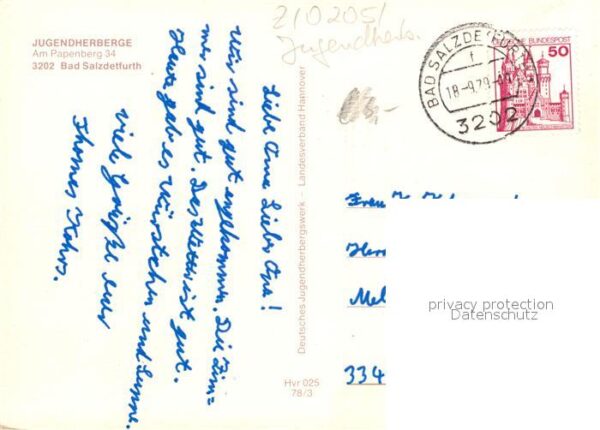 JUGENDHERBERGE
Am Papenberg 34
3202 Bad Salzdetfurth
Liebe Oma Lieber Opa!
Wir sind gut angekommen. Die Zim=
mer sind gut. Das Wetter ist gut.
Heute gab es Würstchen und Suppe.
Viele Grüße euer
Thomas
Deutsches Jugendherbergswerk - Landesverband Hannover
Hvr 025
78/3
Z10205/
Jugendherb.
BAD SALZDETFURTH
18-9.79
3202
DEUTSCHE BUNDESPOST
50
Frau
Herr
Mel
334
privacy protection
Datenschutz